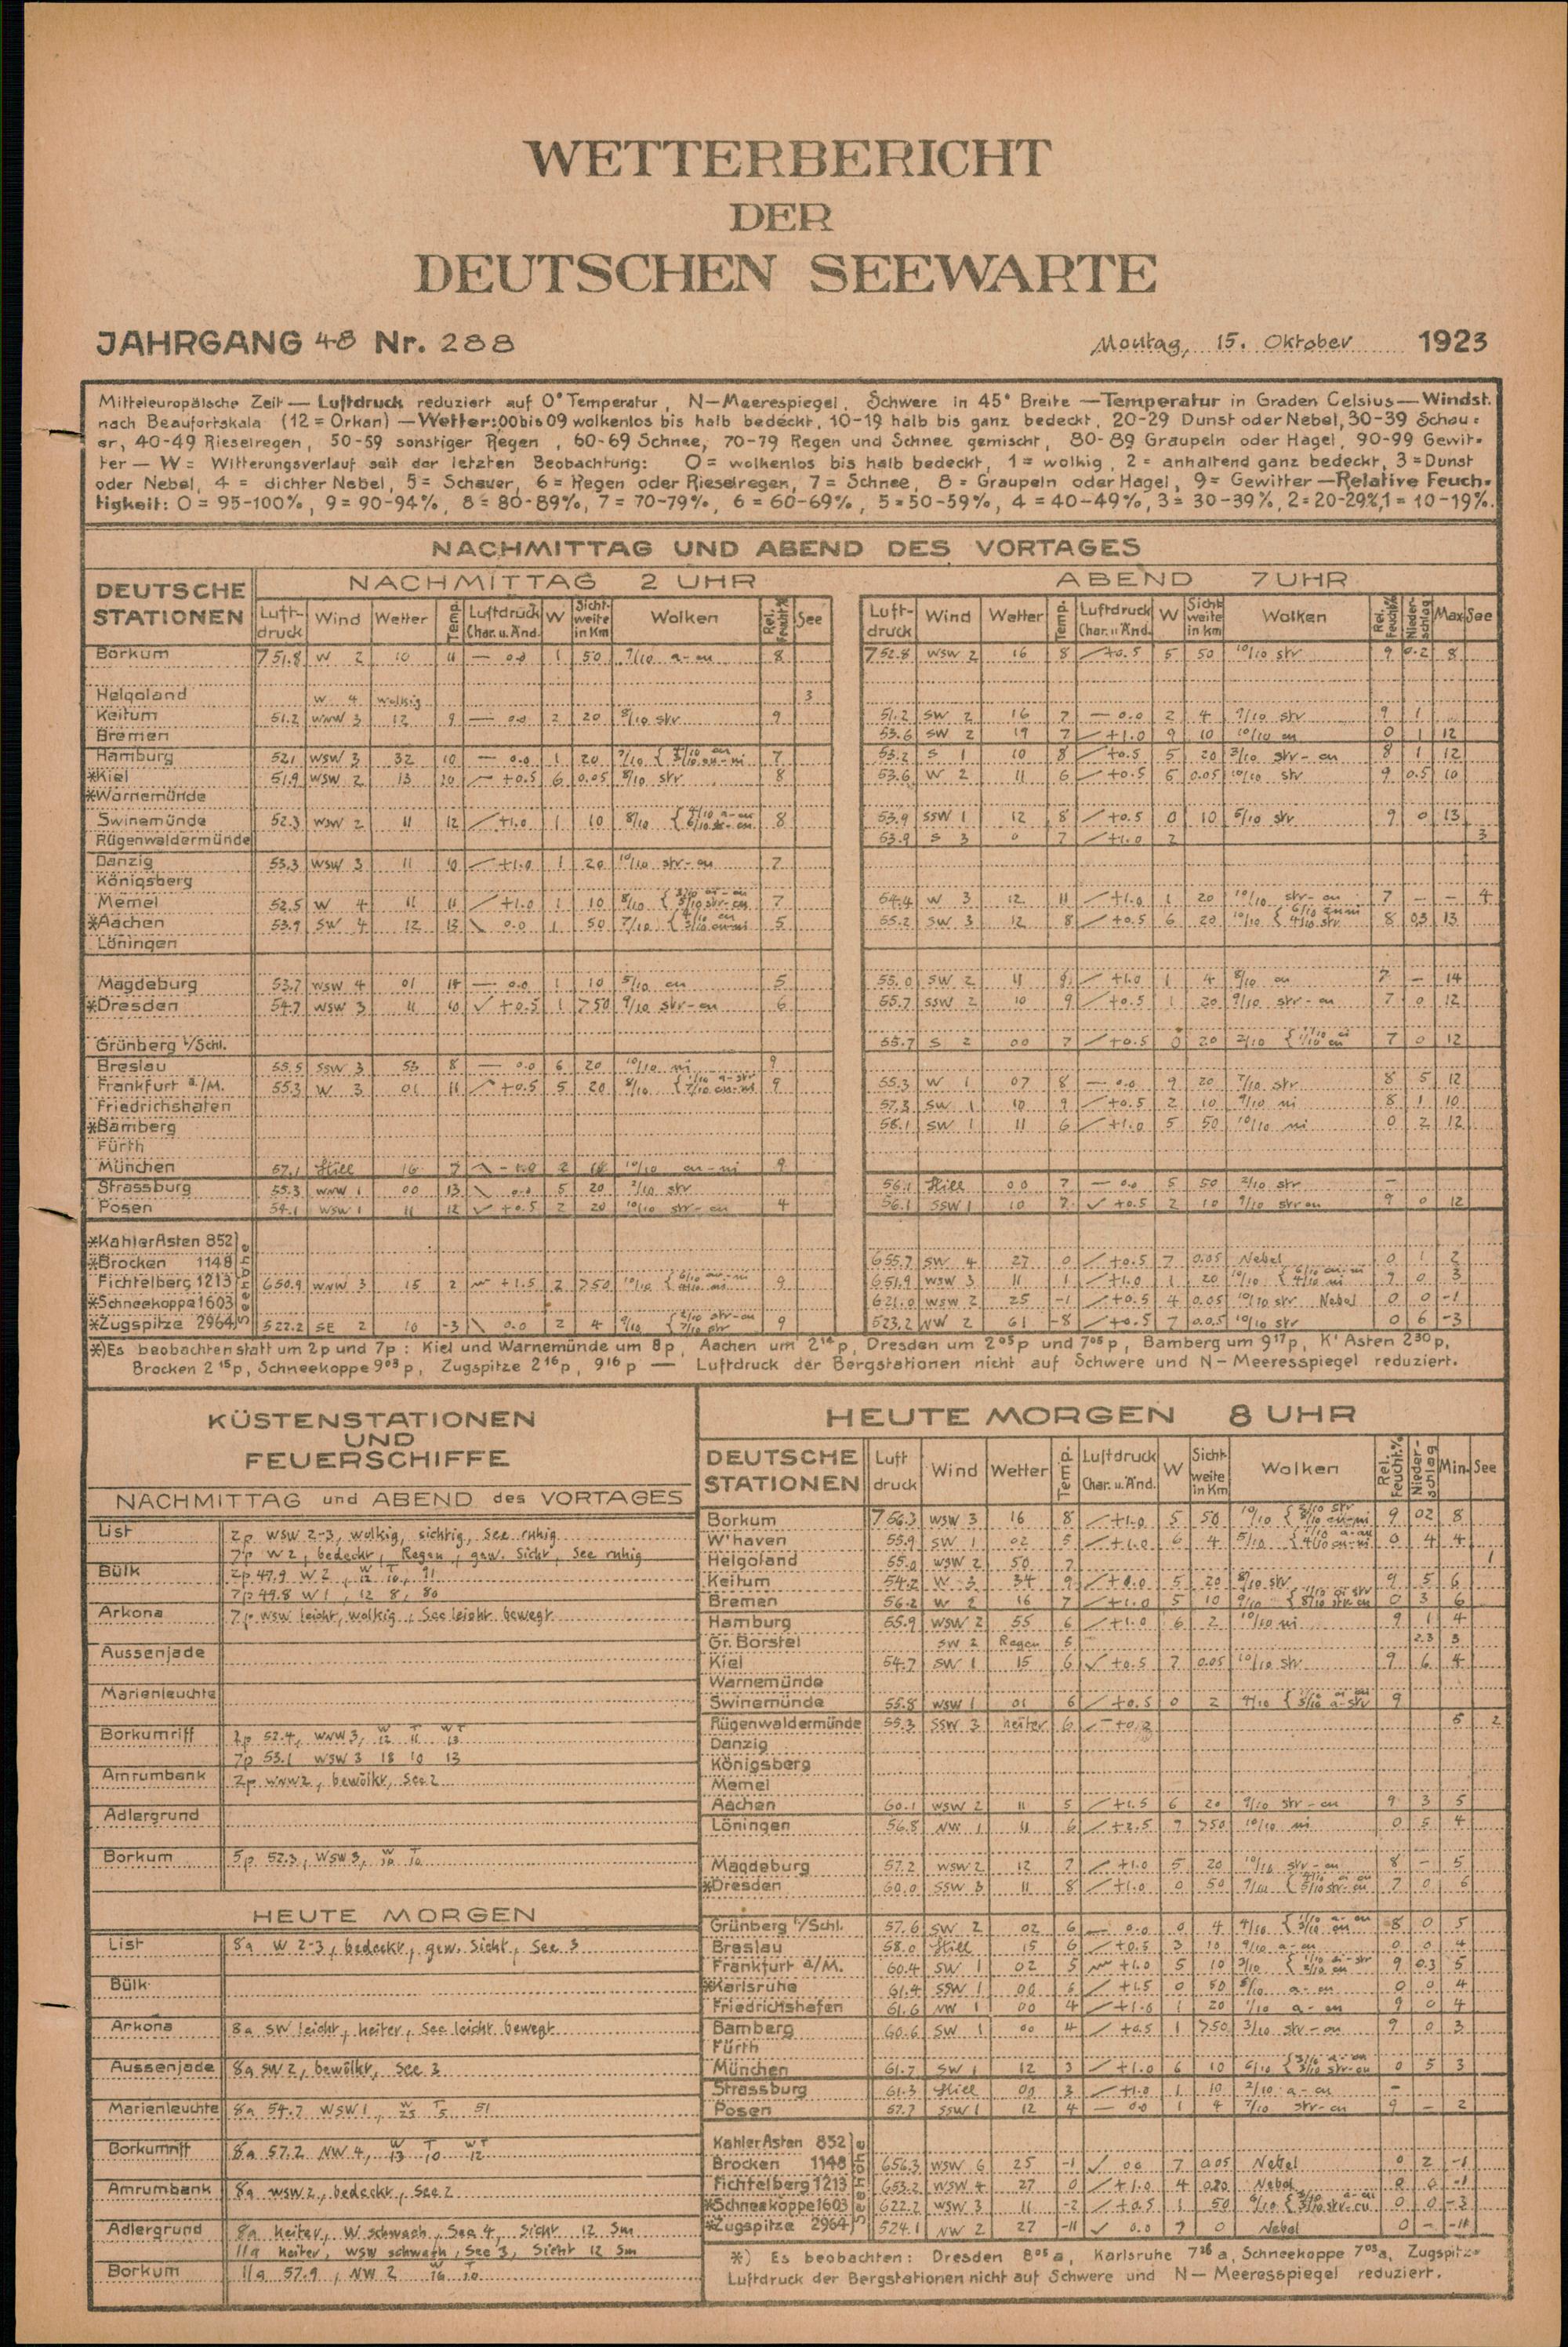 WETTERBERICHT
DER
DEUTSCHEN SEEWARTE
JAHRGANG 48 Nr. 288
Montag, 15. Oktober 1923
Mitteleuropäische Zeit — Luftdruck reduziert auf 0° Temperatur, N-Meerespiegel, Schwere in 45° Breite — Temperatur in Graden Celsius — Windst.
nach Beaufortskala (12 = Orkan) — Wetter: 00 bis 09 wolkenlos bis halb bedeckt, 10-19 halb bis ganz bedeckt, 20-29 Dunst oder Nebel, 30-39 Schau-
er, 40-49 Rieselregen, 50-59 sonstiger Regen, 60-69 Schnee, 70-79 Regen und Schnee gemischt, 80-89 Graupeln oder Hagel, 90-99 Gewit-
ter — W = Witterungsverlauf seit der letzten Beobachtung: 0 = wolkenlos bis halb bedeckt, 1 = wolkig, 2 = anhaltend ganz bedeckt, 3 = Dunst
oder Nebel, 4 = dichter Nebel, 5 = Schauer, 6 = Regen oder Rieselregen, 7 = Schnee, 8 = Graupeln oder Hagel, 9 = Gewitter — Relative Feuch-
tigkeit: 0 = 95-100%, 9 = 90-94%, 8 = 80-89%, 7 = 70-79%, 6 = 60-69%, 5 = 50-59%, 4 = 40-49%, 3 = 30-39%, 2 = 20-29%, 1 = 10-19%.
NACHMITTAG UND ABEND DES VORTAGES
DEUTSCHE STATIONEN
NACHMITTAG 2 UHR
ABEND 7 UHR
Luft-druck Wind Wetter Temp. Luftdruck Char. u. Änd. W Sicht-weite in Km Wolken Rel. Feucht.% See
Luft-druck Wind Wetter Temp. Luftdruck Char. u. Änd. W Sicht-weite in km Wolken Rel. Feucht.% Nieder-schlag Max See
Borkum 751.8 W 2 10 11 — 0.0 1 50 9/10 a-cu 8 752.8 WSW 2 16 8 +0.5 5 50 10/10 str 9 0.2 8
Helgoland W 4 wolkig 3
Keitum 51.2 WNW 3 12 9 — 0.0 2 20 8/10 str 9 51.2 SW 2 16 7 — 0.0 2 4 9/10 str 9 1
Bremen 53.6 SW 2 19 7 +1.0 9 10 10/10 cu 0 1 12
Hamburg 52.1 WSW 3 32 10 — 0.0 1 20 7/10 7 53.2 S 1 10 8 +0.5 5 20 3/10 str-cu 8 1 12
*Kiel 51.9 WSW 2 13 10 +0.5 6 0.05 8/10 str 8 53.6 W 2 11 6 +0.5 6 0.05 10/10 str 9 0.5 10
*Warnemünde
Swinemünde 52.3 WSW 2 11 12 +1.0 1 10 8/10 8 53.9 SSW 1 12 8 +0.5 0 10 5/10 str 9 0 13
Rügenwaldermünde 53.9 S 3 0 7 +1.0 2 3
Danzig 53.3 WSW 3 11 10 +1.0 1 20 10/10 str-cu 7
Königsberg
Memel 52.5 W 4 11 11 +1.0 1 10 8/10 7 54.4 W 3 12 11 +1.0 1 20 10/10 str-cu 7 — — 4
*Aachen 53.9 SW 4 12 13 0.0 1 50 7/10 5 55.2 SW 3 12 8 +0.5 6 20 10/10 8 0.3 13
Löningen
Magdeburg 53.7 WSW 4 01 14 — 0.0 1 10 5/10 cu 5 55.0 SW 2 11 9 +1.0 1 4 8/10 cu 7 — 14
*Dresden 54.7 WSW 3 11 10 +0.5 1 >50 9/10 str-cu 6 55.7 SSW 2 10 9 +0.5 1 20 9/10 str-cu 7 0 12
Grünberg i/Schl. 55.7 S 2 00 7 +0.5 0 20 2/10 7 0 12
Breslau 55.5 SSW 3 53 8 — 0.0 6 20 10/10 ni 9
Frankfurt a./M. 55.3 W 3 01 11 +0.5 5 20 8/10 9 55.3 W 1 07 8 — 0.0 9 20 7/10 str 8 5 12
Friedrichshafen 57.3 SW 1 10 9 +0.5 2 10 9/10 ni 8 1 10
*Bamberg 56.1 SW 1 11 6 +1.0 5 50 10/10 ni 0 2 12
Fürth
München 57.1 Still 16 7 -1.0 2 10/10 cu-ni 9
Strassburg 55.3 WNW 1 00 13 0.0 5 20 2/10 str 56.1 Still 00 7 — 0.0 5 50 2/10 str —
Posen 54.1 WSW 1 11 12 +0.5 2 20 10/10 str-cu 4 56.1 SSW 1 10 7 +0.5 2 10 9/10 str cu 9 0 12
Seehöhe
*Kahler Asten 852
*Brocken 1148 655.7 SW 4 27 0 +0.5 7 0.05 Nebel 0 1 2
Fichtelberg 1213 650.9 WNW 3 15 2 +1.5 2 >50 10/10 9 651.9 WSW 3 11 1 +1.0 1 20 10/10 9 0 3
*Schneekoppe 1603 621.0 WSW 2 25 -1 +0.5 4 0.05 10/10 str Nebel 0 0 -1
*Zugspitze 2964 522.2 SE 2 10 -3 0.0 2 4 9/10 9 523.2 NW 2 61 -8 +0.5 7 0.05 10/10 str 0 6 -3
*) Es beobachten statt um 2p und 7p: Kiel und Warnemünde um 8p, Aachen um 2 14 p, Dresden um 2 05 p und 7 05 p, Bamberg um 9 17 p, K' Asten 2 30 p,
Brocken 2 15 p, Schneekoppe 9 03 p, Zugspitze 2 16 p, 9 16 p — Luftdruck der Bergstationen nicht auf Schwere und N-Meeresspiegel reduziert.
KÜSTENSTATIONEN
UND
FEUERSCHIFFE
NACHMITTAG und ABEND des VORTAGES
List 2p WSW 2-3, wolkig, sichtig, See ruhig
7p W 2, bedeckt, Regen, gew. Sicht, See ruhig
Bülk 2p 47.9 W 2, W 12 T 10, 91
7p 49.8 W 1, 12 8, 80
Arkona 7p WSW leicht, wolkig, See leicht bewegt
Aussenjade
Marienleuchte
Borkumriff 2p 52.4, WNW 3, W 12 T 11 WT 13
7p 53.1 WSW 3 18 10 13
Amrumbank 2p WNW 2, bewölkt, See 2
Adlergrund
Borkum 5p 52.3, WSW 3, W 10 T 10
HEUTE MORGEN
List 8a W 2-3, bedeckt, gew. Sicht, See 3
Bülk
Arkona 8a SW leicht, heiter, See leicht bewegt
Aussenjade 8a SW 2, bewölkt, See 3
Marienleuchte 8a 54.7 WSW 1, W 25 T 5 51
Borkumriff 8a 57.2 NW 4, W 13 T 10 WT 12
Amrumbank 8a WSW 2, bedeckt, See 2
Adlergrund 8a heiter, W schwach, See 4, Sicht 12 Sm
11a heiter, WSW schwach, See 3, Sicht 12 Sm
Borkum 11a 57.9, NW 2 W 16 T 10
HEUTE MORGEN 8 UHR
DEUTSCHE STATIONEN Luft druck Wind Wetter Temp. Luftdruck Char. u. Änd. W Sicht-weite in Km Wolken Rel. Feucht.% Nieder-schlag Min. See
Borkum 756.3 WSW 3 16 8 +1.0 5 50 10/10 9 02 8
W'haven 55.9 SW 1 02 5 +1.0 6 4 5/10 0 4 4
Helgoland 55.0 WSW 2 50 7 1
Keitum 54.2 W 3 34 9 5 20 8/10 str 9 5 6
Bremen 56.2 W 2 16 7 +1.0 5 10 9/10 0 3 6
Hamburg 55.9 WSW 2 55 6 +1.0 6 2 10/10 ni 9 1 4
Gr. Borstel SW 2 Regen 5 2.3 3
Kiel 54.7 SW 1 15 6 +0.5 7 0.05 10/10 str 9 6 4
Warnemünde
Swinemünde 55.8 WSW 1 01 6 +0.5 0 2 4/10 9
Rügenwaldermünde 55.3 SSW 3 heiter 6 5 2
Danzig
Königsberg
Memel
Aachen 60.1 WSW 2 11 5 +1.5 6 20 9/10 str-cu 9 3 5
Löningen 56.8 NW 1 11 6 +2.5 9 >50 10/10 ni 0 5 4
Magdeburg 57.2 WSW 2 12 7 +1.0 5 20 10/10 str-cu 8 — 5
*Dresden 60.0 SSW 3 11 8 +1.0 0 50 9/10 7 0 6
Grünberg i/Schl. 57.6 SW 2 02 6 — 0.0 0 4 4/10 8 0 5
Breslau 58.0 Still 15 6 +0.5 3 10 9/10 a-cu 0 0 4
Frankfurt a/M. 60.4 SW 1 02 5 +1.0 5 10 3/10 9 0.3 5
*Karlsruhe 61.4 SSW 1 00 6 +1.5 0 50 a-cu 0 0 4
Friedrichshafen 61.6 NW 1 00 4 +1.0 1 20 1/10 a-cu 9 0 4
Bamberg 60.6 SW 1 00 4 +0.5 1 >50 3/10 str-cu 9 0 3
Fürth
München 61.7 SW 1 12 3 +1.0 6 10 6/10 0 5 3
Strassburg 61.3 Still 00 3 +1.0 1 10 2/10 a-cu —
Posen 57.7 SSW 1 12 4 — 0.0 1 4 7/10 str-cu 9 — 2
Seehöhe
Kahler Asten 852
Brocken 1148 656.3 WSW 6 25 -1 0.0 7 0.05 Nebel 0 2 -1
Fichtelberg 1213 653.2 WSW 4 27 0 +1.0 4 0.20 Nebel 0 0 -1
*Schneekoppe 1603 622.2 WSW 3 11 -2 +0.5 1 50 9/10 0 0 -3
*Zugspitze 2964 524.1 NW 2 27 -11 0.0 7 0 Nebel 0 — -11
*) Es beobachten: Dresden 8 05 a, Karlsruhe 7 26 a, Schneekoppe 7 03 a, Zugspitze
Luftdruck der Bergstationen nicht auf Schwere und N-Meeresspiegel reduziert.